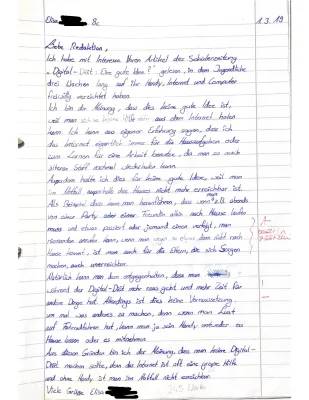 Elisa 8c 1.3.19
Liebe Redaktion,
Ich habe mit Interesse Ihren Artikel der Schülerzeitung
"Digital-Diät: Eine gute Idee?" gelesen, in dem Jugendliche
drei Wochen lang auf ihr Handy, Internet und Computer
freiwillig verzichtet haben.
Ich bin der Meinung, dass dies keine gute Idee ist,
weil man sich so keine Hilfe mehr aus dem Internet holen
kann. Ich kann aus eigener Erfahrung sagen, dass ich
das Internet eigentlich immer für die Hausaufgaben oder
zum Lernen für eine Arbeit benutze, da man so auch
Außerdem halte ich dies für keine gute Idee, weil man
im Notfall außerhalb des Hauses nicht mehr erreichbar ist.
Als Beispiel dazu kann man heranführen, dass wenn man z.B. abends
von einer Party oder einer Freundin allein nach Hause laufen
muss und etwas passiert oder jemand einen verfolgt, man
niemanden anrufen kann, wenn man
nach Hause kommt, ist man auch für die Eltern, die sich Sorgen
machen, auch unerreichbar.
Natürlich kann man dem entgegenhalten, dass man
während der Digital-Diät mehr raus geht und mehr Zeit für
andere Dinge hat. Allerdings ist dies keine Voraussetzung,
um mal was anderes zu machen, denn wenn man Lust
auf Fahrradfahren hat, kann man ja sein Handy entweder zu
Hause lassen oder es mitnehmen.
Aus diesen Gründen bin ich der Meinung, dass man keine Digital-
Diät machen sollte, denn das Internet ist oft eine große Hilfe
und ohne Handy ist man im Notfall nicht erreichbar.
Viele Grüße Elisa
245 Wörter